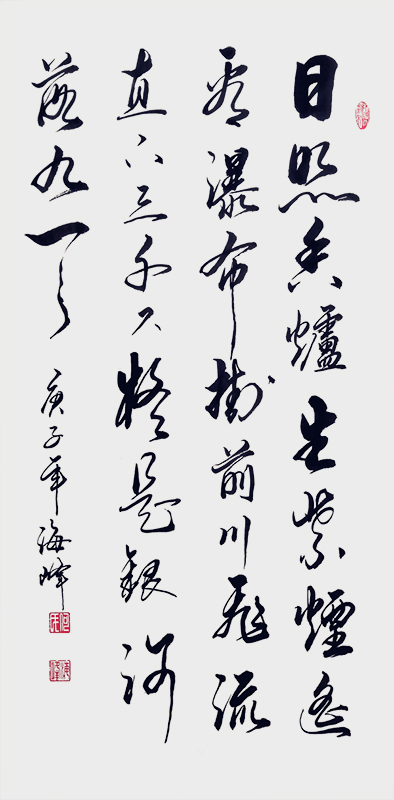 日照香爐生紫煙遙
看瀑布掛前川飛流
直下三千尺疑是銀河
落九天
庚子年海峰